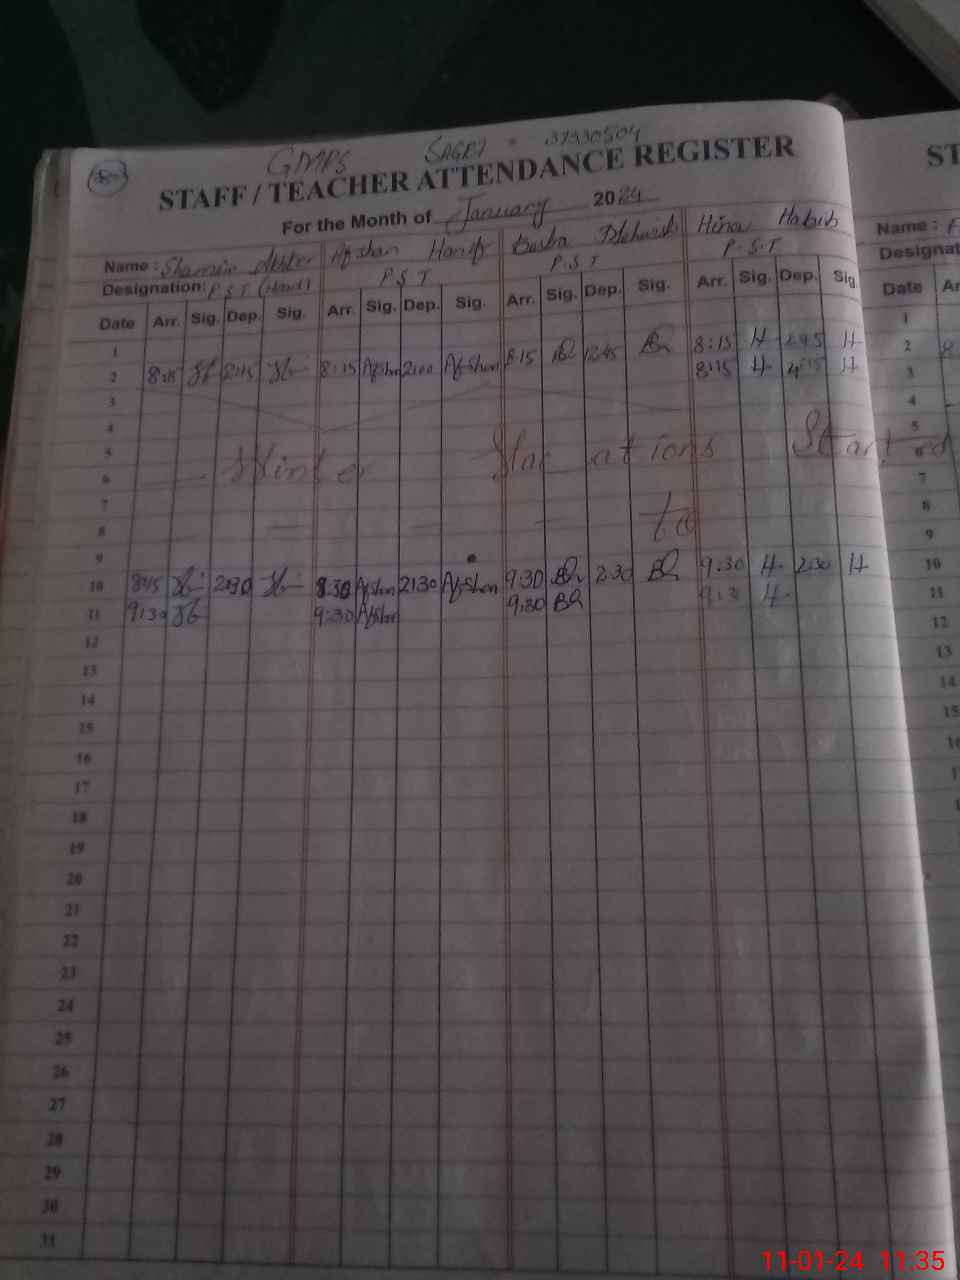 80
GMPS SAGRI = 37330504
STAFF / TEACHER ATTENDANCE REGISTER ST
For the Month of January 2024
Name : Shamim Akhter Afshan Hanif Bushra Hina Habib Name :
Designation: P.S.T (Head) P S T P.S.T P.S.T Designat
Date Arr. Sig. Dep. Sig. Arr. Sig. Dep. Sig. Arr. Sig. Dep. Sig. Arr. Sig. Dep. Sig. Date Ar
1 8:15 H 2:45 H 1
2 8:15 2:15 8:15 Afshan 2:00 Afshan 8:15 12:45 8:15 H H 2
3 3
4 4
5 Winter Vacations Started 5
6 6
7 to 7
8 8
9 9
10 8:45 2:30 8:30 Afshan 2:30 Afshan 9:30 2:30 9:30 H 2:30 H 10
11 9:30 9:30 Afshan 9:30 9:3 H 11
12 12
13 13
14 14
15 15
16 16
17 1
18
19
20
21
22
23
24
25
26
27
28
29
30
31
11-01-24 11:35